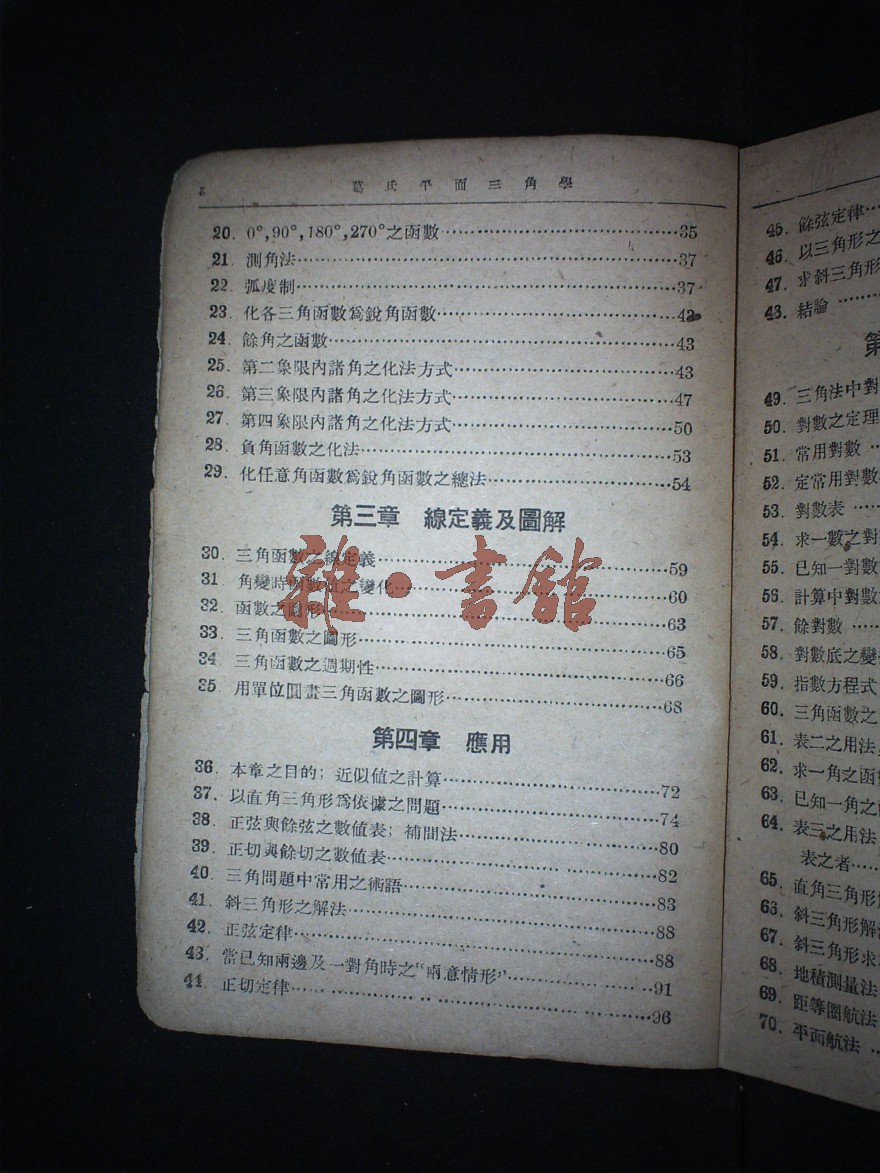 葛氏平面三角學
20. 0°,90°,180°,270°之函數……35
21. 測角法……37
22. 弧度制……37
23. 化各三角函數爲銳角函數……42
24. 餘角之函數……43
25. 第二象限內諸角之化法方式……43
26. 第三象限內諸角之化法方式……47
27. 第四象限內諸角之化法方式……50
28. 負角函數之化法……53
29. 化任意角函數爲銳角函數之總法……54
第三章 線定義及圖解
30. 三角函數之線定義……59
31. 角變時函數值之變化……60
32. 函數之圖形……63
33. 三角函數之圖形……65
34. 三角函數之週期性……66
35. 用單位圓畫三角函數之圖形……68
雜·書館
第四章 應用
36. 本章之目的; 近似值之計算……72
37. 以直角三角形爲依據之問題……74
38. 正弦與餘弦之數值表; 補間法……80
39. 正切與餘切之數值表……82
40. 三角問題中常用之術語……83
41. 斜三角形之解法……88
42. 正弦定律……88
43. 當已知兩邊及一對角時之“兩意情形”……91
44. 正切定律……96
45. 餘弦定律…
46. 以三角形之
47. 求斜三角形
48. 結論……
第
49. 三角法中對
50. 對數之定理
51. 常用對數…
52. 定常用對數
53. 對數表……
54. 求一數之對
55. 已知一對數
56. 計算中對數
57. 餘對數……
58. 對數底之變
59. 指數方程式
60. 三角函數之
61. 表二之用法
62. 求一角之函
63. 已知一角之
64. 表三之用法
表之者……
65. 直角三角形
66. 斜三角形解
67. 斜三角形求
68. 地積測量法
69. 距等圈航法
70. 平面航法…